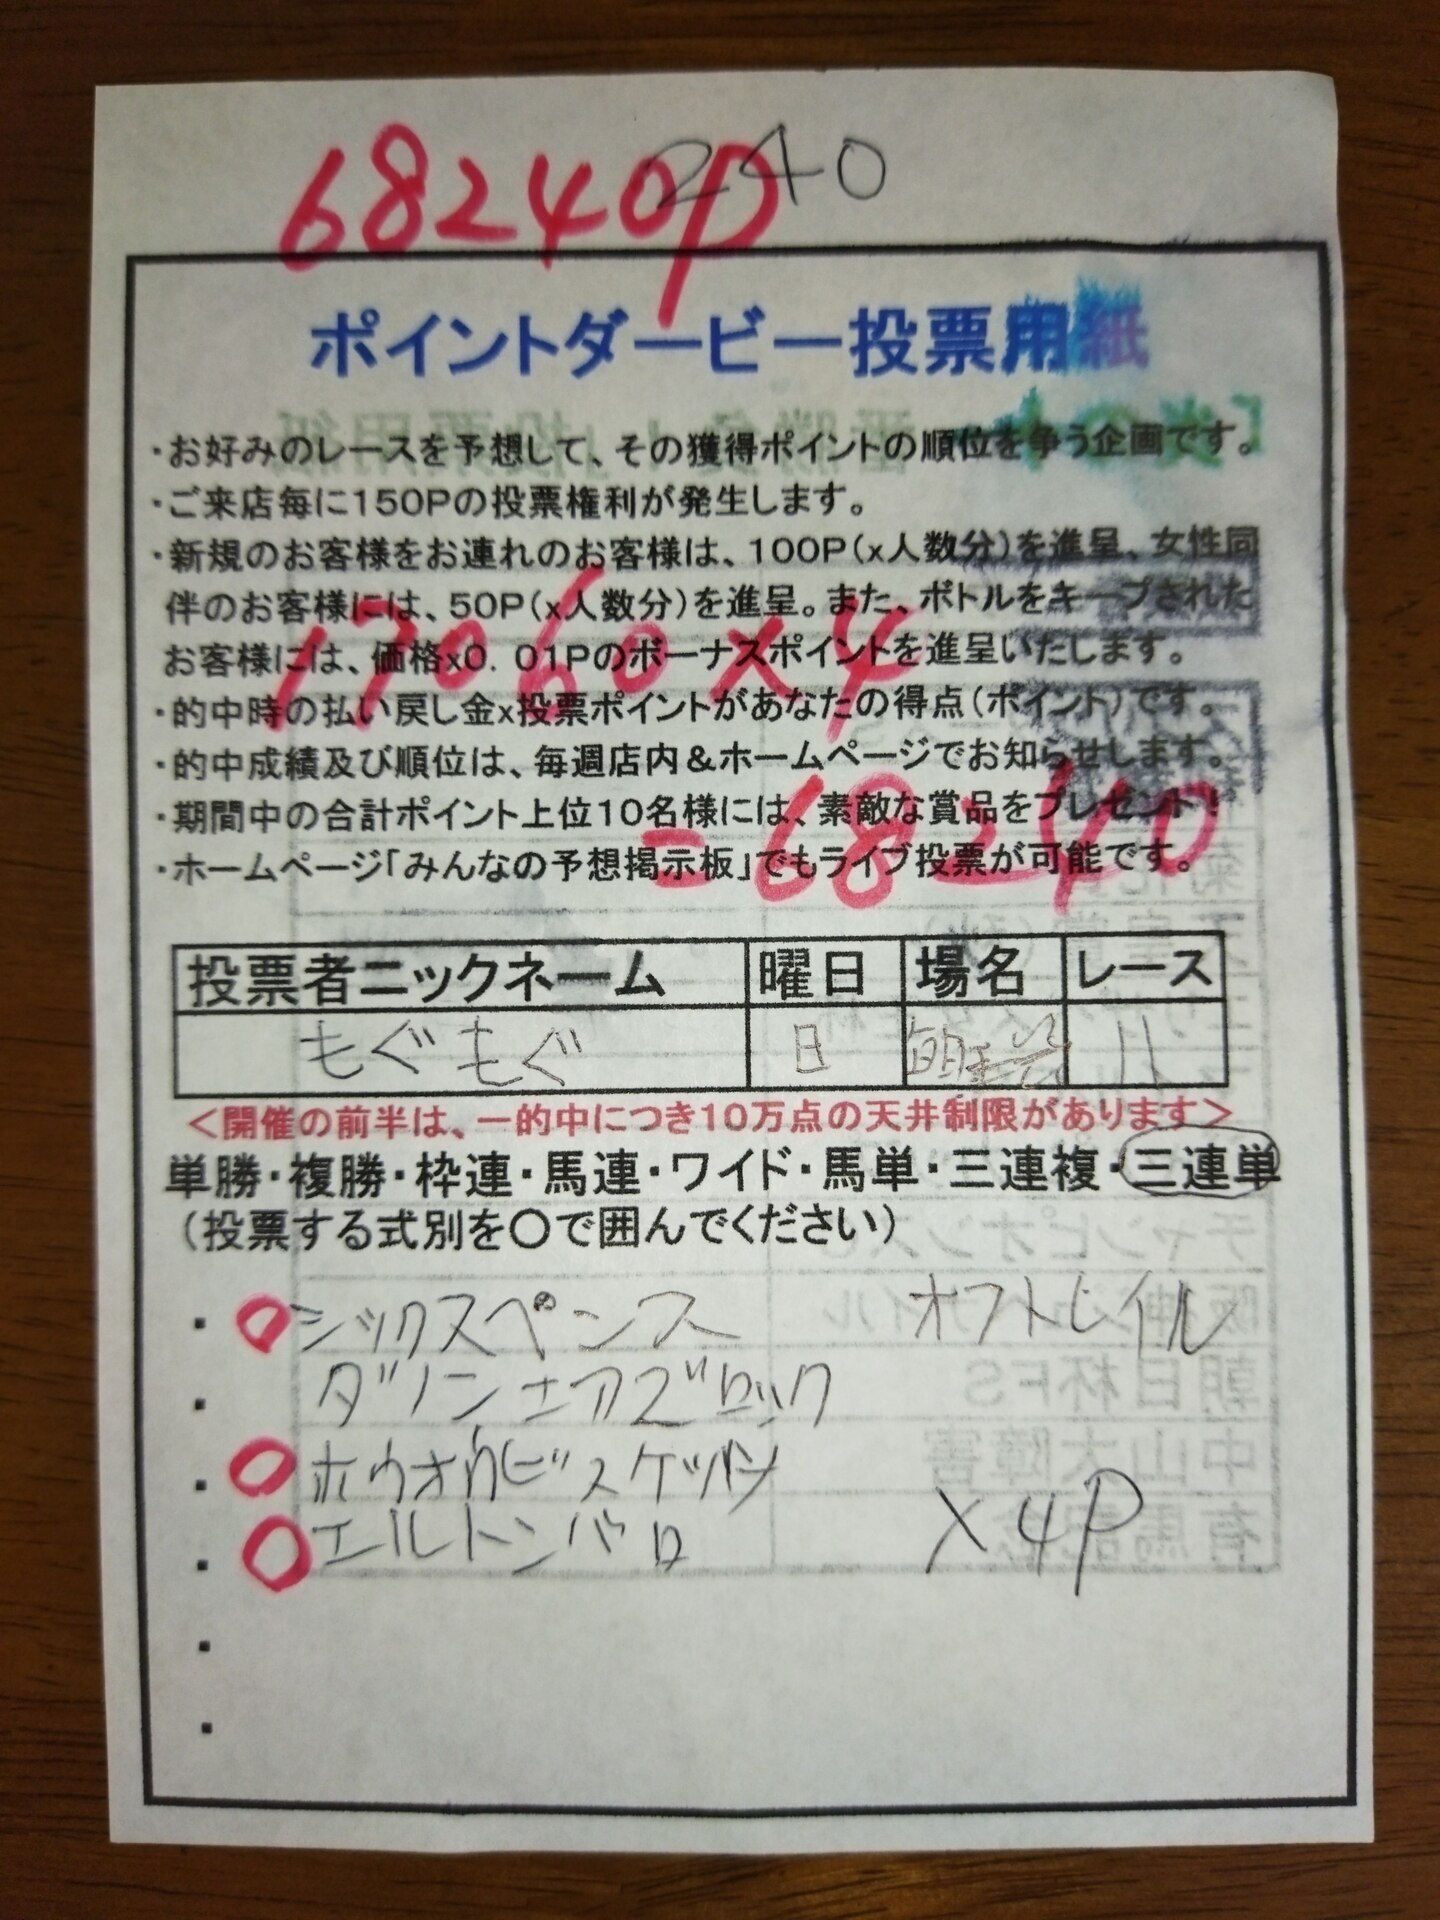 68240P 240
ポイントダービー投票用紙
・お好みのレースを予想して、その獲得ポイントの順位を争う企画です。
・ご来店毎に150Pの投票権利が発生します。
・新規のお客様をお連れのお客様は、100P(x人数分)を進呈、女性同
伴のお客様には、50P(x人数分)を進呈。また、ボトルをキープされた
お客様には、価格x0.01Pのボーナスポイントを進呈いたします。
17060×4
・的中時の払い戻し金x投票ポイントがあなたの得点(ポイント)です。
・的中成績及び順位は、毎週店内&ホームページでお知らせします。
・期間中の合計ポイント上位10名様には、素敵な賞品をプレゼント!
=68240
・ホームページ「みんなの予想掲示板」でもライブ投票が可能です。
投票者ニックネーム 曜日 場名 レース
もぐもぐ 日 11
<開催の前半は、一的中につき10万点の天井制限があります>
単勝・複勝・枠連・馬連・ワイド・馬単・三連複・三連単
(投票する式別を○で囲んでください)
・○シックスペンス オフトレイル
・ダノンエアズロック
・○ホウオウビスケッツ
・○エルトンバロ ×4P
・
・